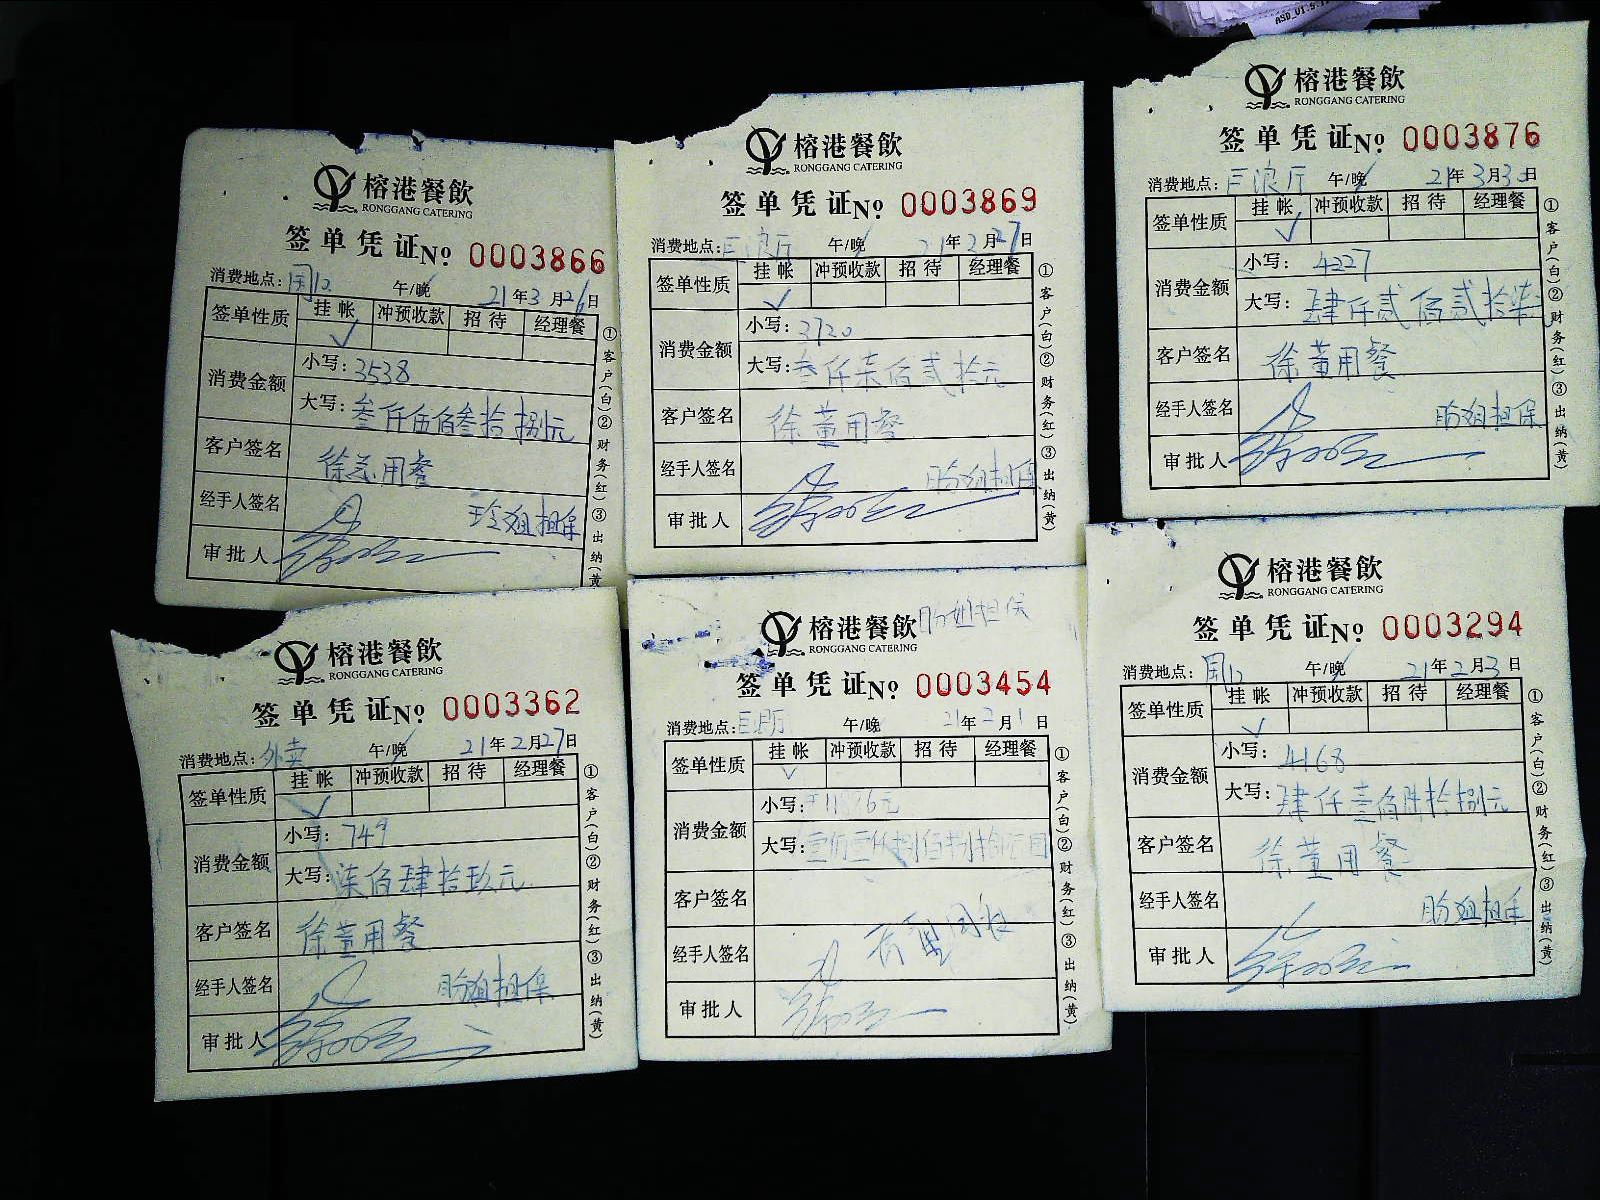 ASD_V1.5.1
榕港餐飲
RONGGANG CATERING
签单凭证No 0003866
消费地点: 午/晚 21年3月26日
签单性质 挂帐 冲预收款 招待 经理餐
✓
消费金额 小写: 3538
大写: 叁仟伍佰叁拾捌元
客户签名 徐总用餐
经手人签名 玲姐担保
审批人
①客户(白)②财务(红)③出纳(黄
榕港餐飲
RONGGANG CATERING
签单凭证No 0003869
消费地点: 巨浪厅 午/晚 21年2月27日
签单性质 挂帐 冲预收款 招待 经理餐
✓
消费金额 小写: 3720
大写: 叁仟柒佰贰拾元
客户签名 徐董用餐
经手人签名 肋姐担保
审批人
①客户(白)②财务(红)③出纳(黄)
榕港餐飲
RONGGANG CATERING
签单凭证No 0003876
消费地点: 巨浪厅 午/晚 21年3月30日
签单性质 挂帐 冲预收款 招待 经理餐
✓
消费金额 小写: 4227
大写: 肆仟贰佰贰拾柒
客户签名 徐董用餐
经手人签名 肋姐担保
审批人
①客户(白)②财务(红)③出纳(黄)
榕港餐飲
RONGGANG CATERING
签单凭证No 0003362
消费地点: 外卖 午/晚 21年2月27日
签单性质 挂帐 冲预收款 招待 经理餐
✓
消费金额 小写: 749
大写: 柒佰肆拾玖元
客户签名 徐董用餐
经手人签名 肋姐担保
审批人
①客户(白)②财务(红)③出纳(黄)
榕港餐飲 肋姐担保
RONGGANG CATERING
签单凭证No 0003454
消费地点: 午/晚 21年2月1日
签单性质 挂帐 冲预收款 招待 经理餐
✓
消费金额 小写:
大写:
客户签名
经手人签名
审批人
①客户(白)②财务(红)③出纳(黄)
榕港餐飲
RONGGANG CATERING
签单凭证No 0003294
消费地点: 午/晚 21年2月3日
签单性质 挂帐 冲预收款 招待 经理餐
✓
消费金额 小写: 4168
大写: 肆仟壹佰陆拾捌元
客户签名 徐董用餐
经手人签名 肋姐担保
审批人
①客户(白)②财务(红)③出纳(黄)